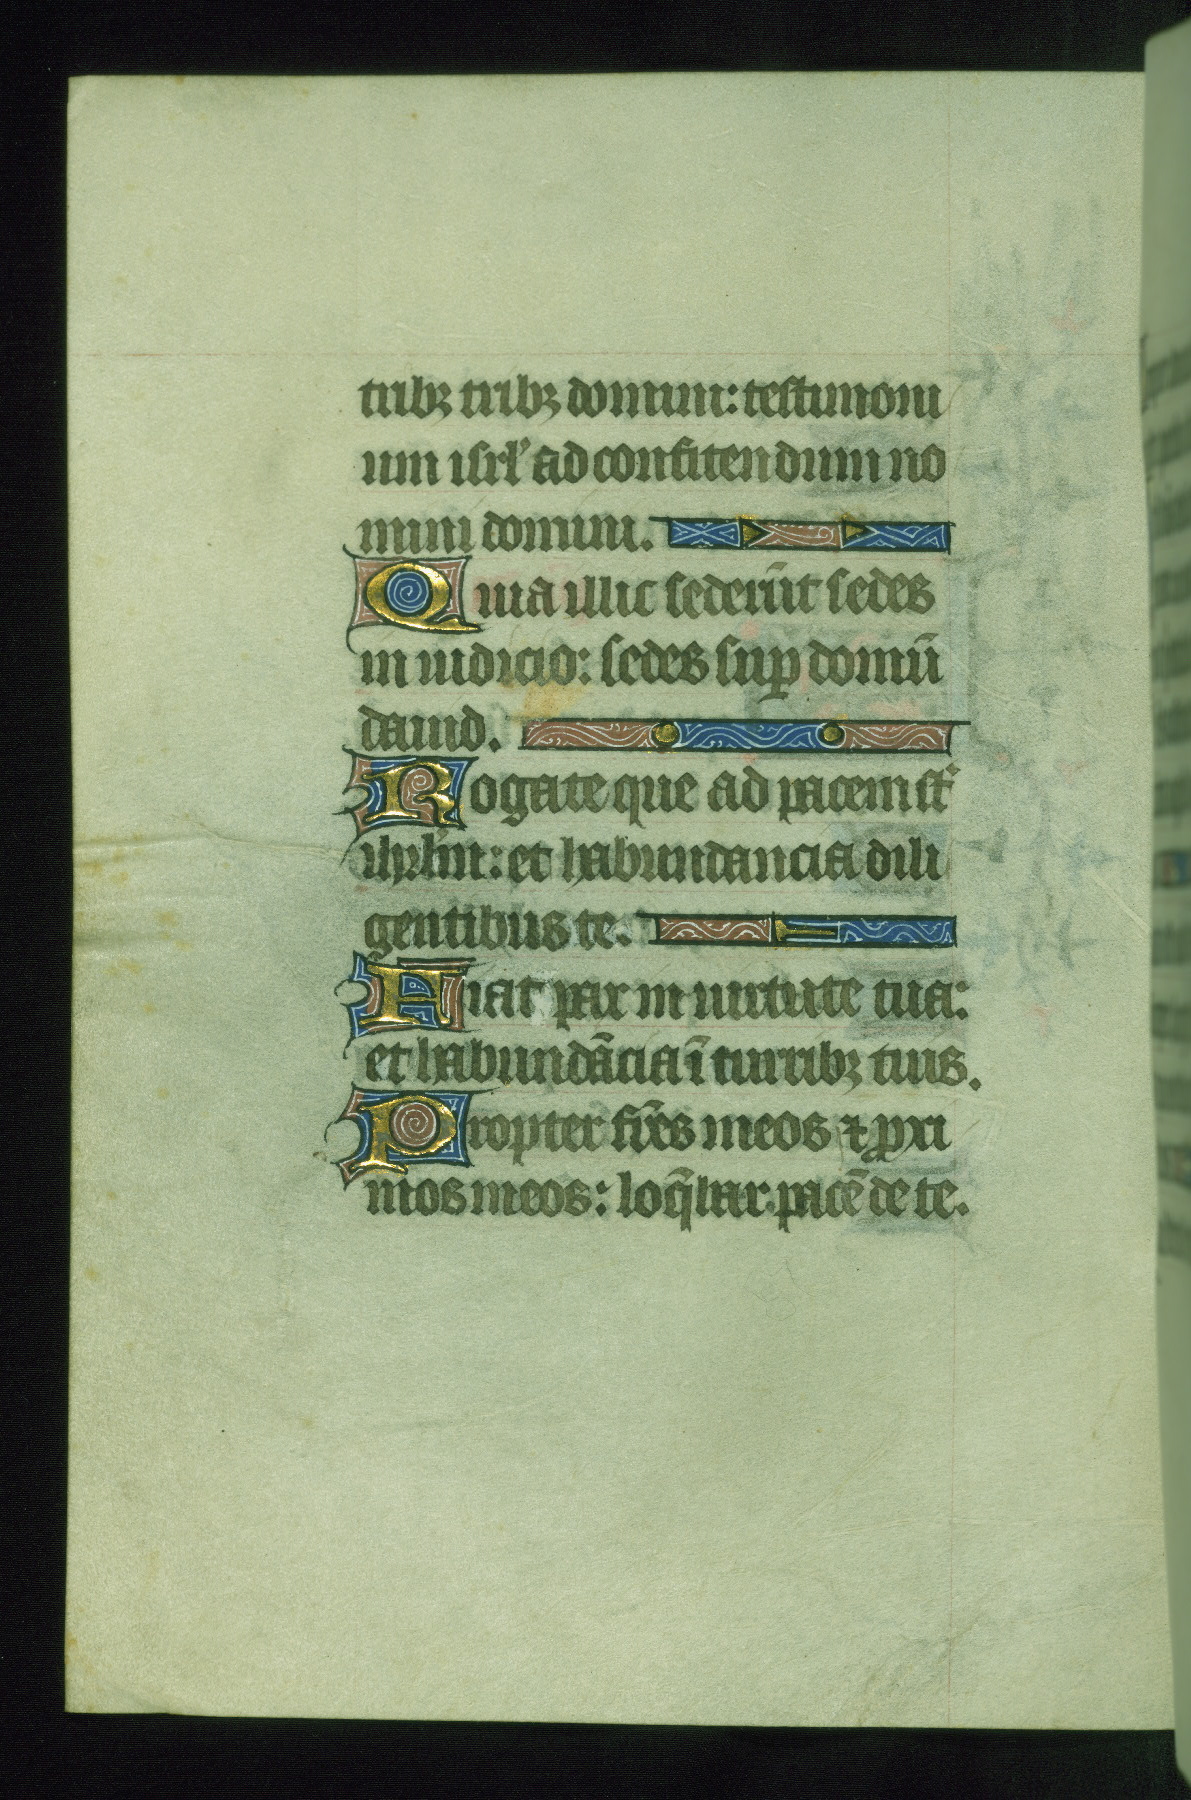 tribꝫ tribꝫ domini: testimoni
um isrl' ad confitendum no
mini domini.
Quia illic sederūt sedes
in iudicio: sedes suꝑ domū
dauid.
Rogate que ad pacem st̄
ihrl'm: et habundancia dili
gentibus te.
Fiat pax in uirtute tua:
et habundācia ī turribꝫ tuis.
Propter fr̄es meos ⁊ ꝓxi
mos meos: loq̄bar pacē de te.